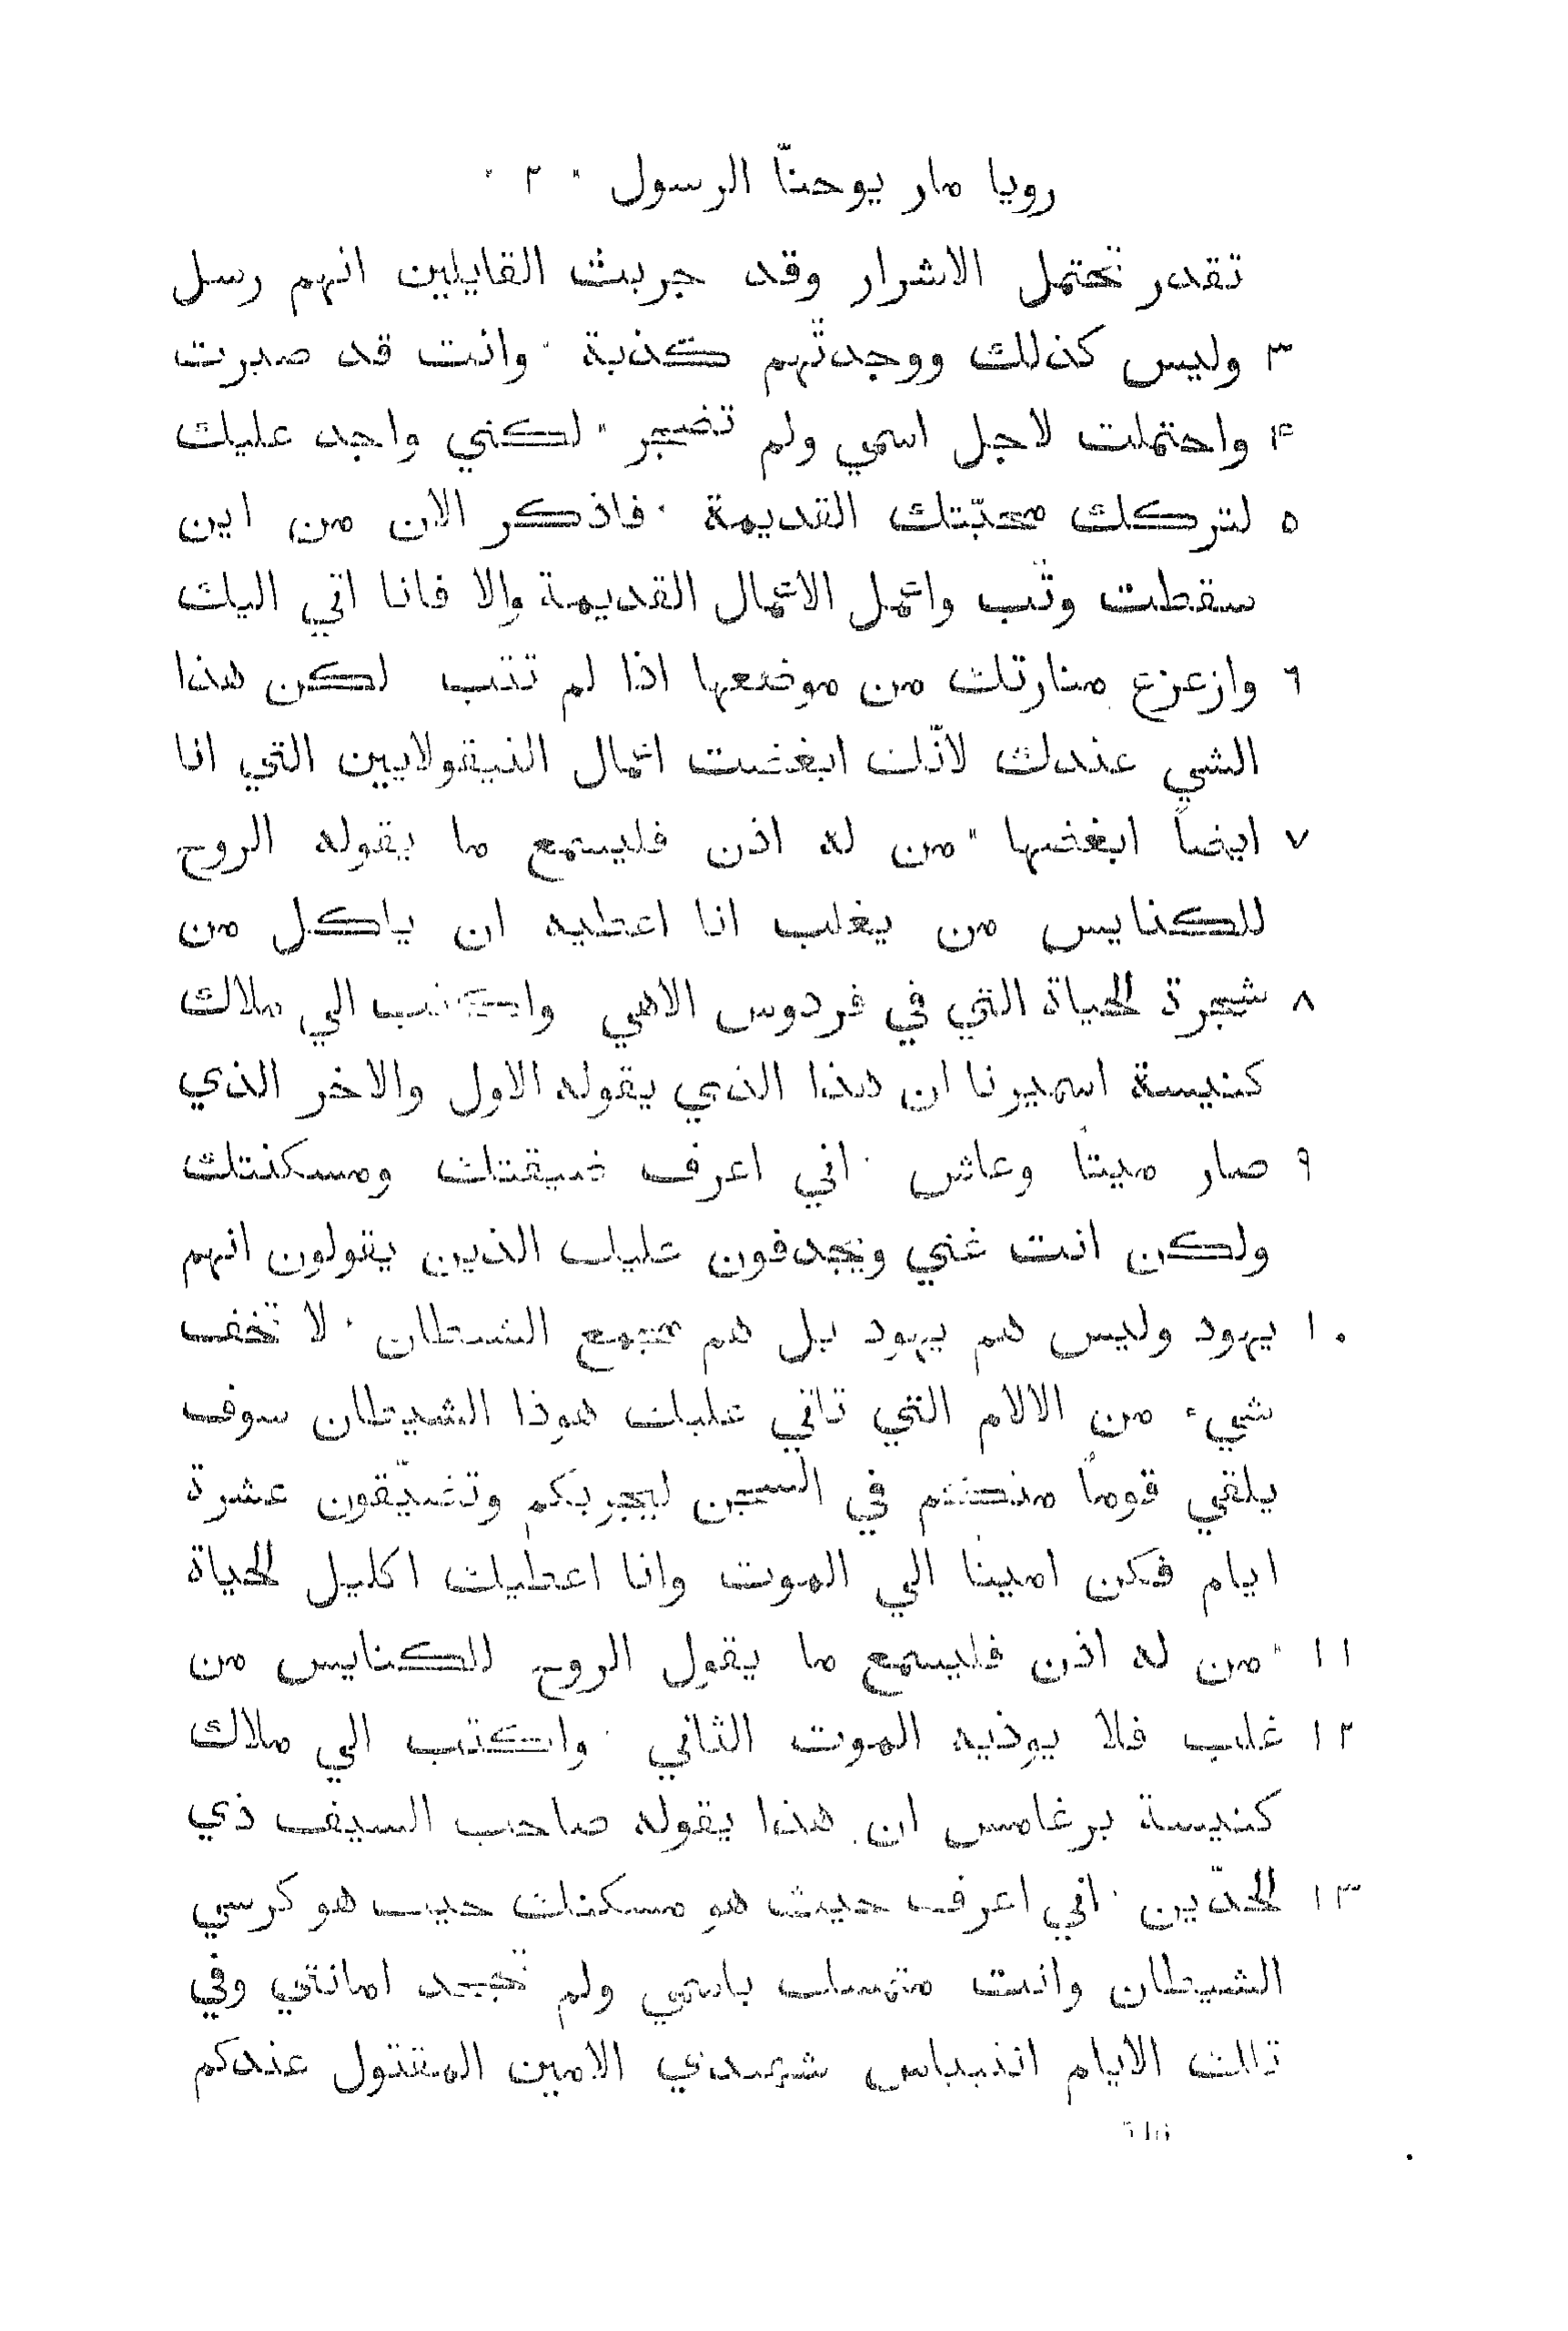 رويا مار يوحنّا الرسول ٠ ٢ ٠
تقدر تحتمل الاشرار وقد جربت القايلين انهم رسل
٣ وليس كذلك ووجدتّهم كذبة ٠ وانت قد صبرت
۴ واحتملت لاجل اسمي ولم تضجر ٠ لكني واجد عليك
٥ لتركك محبّتك القديمة ٠ فاذكر الان من اين
سقطت وتُب واعمل الاعمال القديمة والا فانا اتي اليك
٦ وازعزع منارتك من موضعها اذا لم تتب لكن هذا
الشي عندك لانّك ابغضت اعمال النيقولايين التي انا
٧ ايضاً ابغضها ٠ من له اذن فليسمع ما يقوله الروح
للكنايس من يغلب انا اعطيه ان ياكل من
٨ شجرة الحياة التي في فردوس الاهي واكتب الي ملاك
كنيسة اسميرنا ان هذا الذي يقوله الاول والاخر الذي
٩ صار ميتاً وعاش ٠ اني اعرف ضيقتك ومسكنتك
ولكن انت غني ويجدفون عليك الذين يقولون انهم
١٠ يهود وليس هم يهود بل هم مجمع الشيطان ٠ لا تخف
شيء من الالام التي تاتي عليك هوذا الشيطان سوف
يلقي قوماً منكم في السجن ليجربكم وتضيّقون عشرة
ايام فكن اميناً الي الموت وانا اعطيك اكليل الحياة
١١ ٠ من له اذن فليسمع ما يقول الروح للكنايس من
١٢ غلب فلا يوذيه الموت الثاني ٠ واكتب الي ملاك
كنيسة برغامس ان هذا يقوله صاحب السيف ذي
١٣ الحدّين ٠ اني اعرف حيث هو مسكنك حيث هو كرسي
الشيطان وانت متمسك باسمي ولم تجحد امانتي وفي
تلك الايام انتيباس شهيدي الامين المقتول عندكم